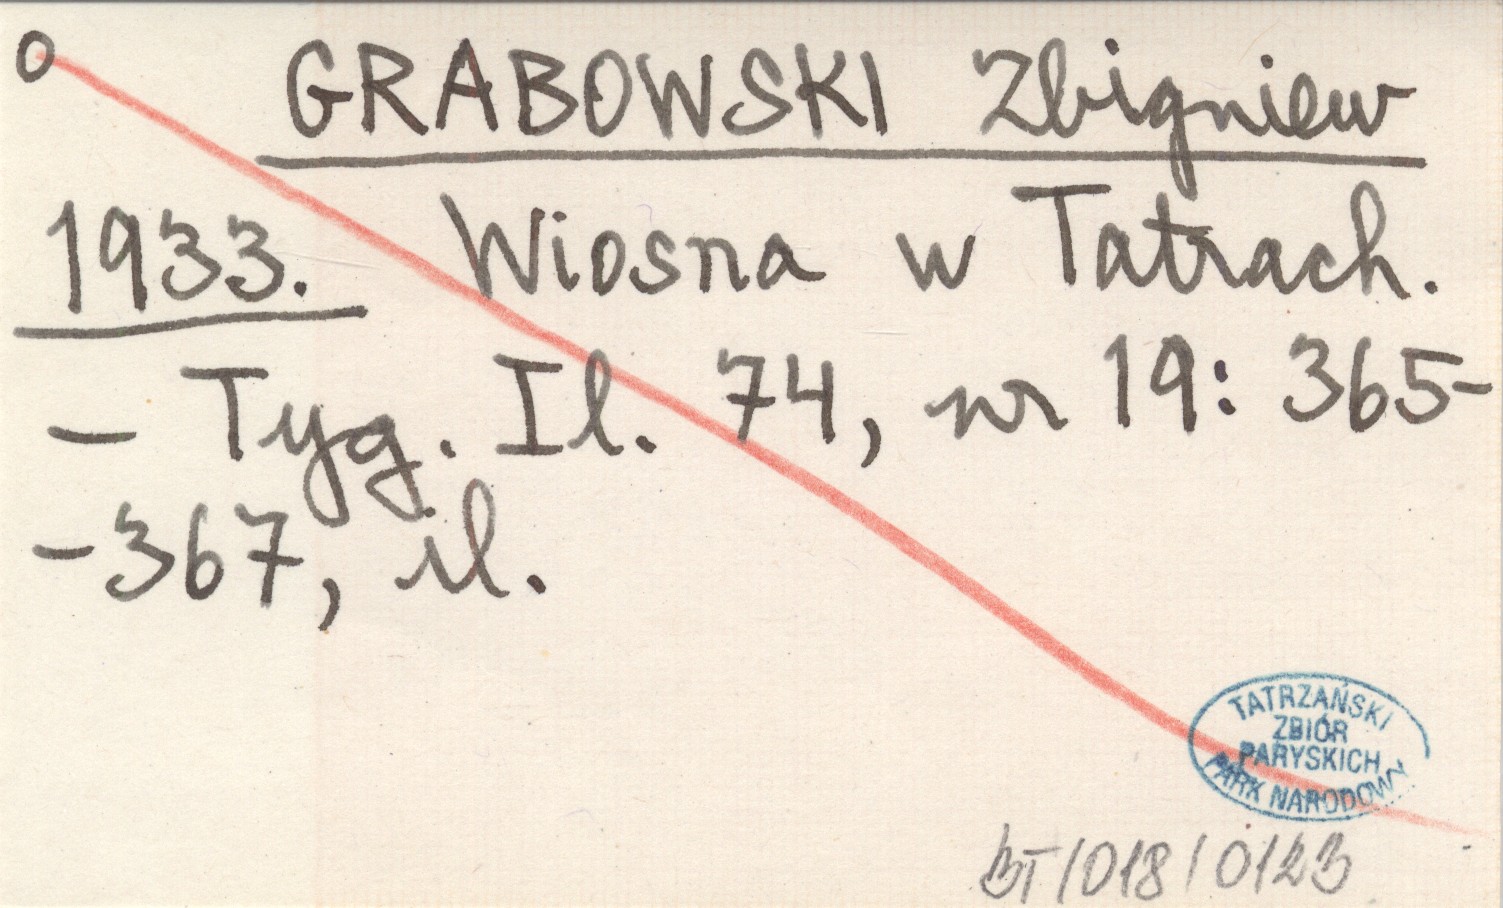 O GRABOWSKI Zbigniew
1933. Wiosna w Tatrach.
– Tyg. Il. 74, nr 19: 365-
-367, il.
TATRZAŃSKI
ZBIÓR
PARYSKICH
PARK NARODOWY
BT/018/0123